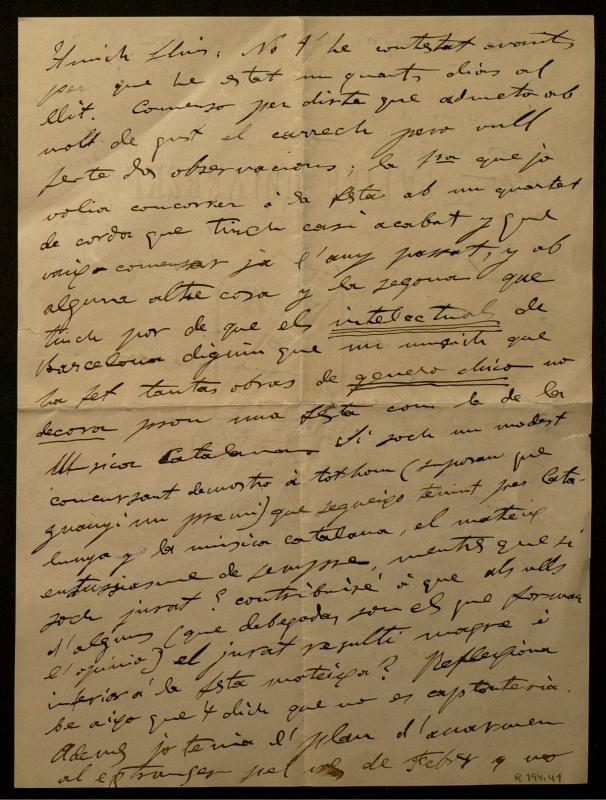 Amich Lluis: No t' he contestat avants
per que he estat uns quants dias al
llit. Comenso per dirte que admeto ab
molt de gust el carrech pero vull
ferte dos observacions; la 1ra que jo
volia concorrer á la festa ab un quartet
de corda que tinch casi acabat y que
vaix comensar ja l'any passat, y ab
alguna altre cosa y la segona que
tinch por de que els intelectuals de
Barcelona diguin que un musich que
ha fet tantas obras de genero chico no
decora prou una festa com la de la
Musica Catalana. Si soch un modest
concursant demostro á tothom (suposan que
guanyi un premi) que segueixo tenint per Cata-
lunya y la musica catalana, el mateix
entussiasme de sempre, mentres que si
soch jurat? contribuiré á que als ulls
d'alguns (que debegadas son els que forman
l'opinió) el jurat resulti magre é
inferior á la festa mateixa? Reflexiona
be aixo que 't dich que no es cap tonteria.
Ademes jo tenia el plan d'anarmen
al estranger pel mes de Febrer y no
R.194.41